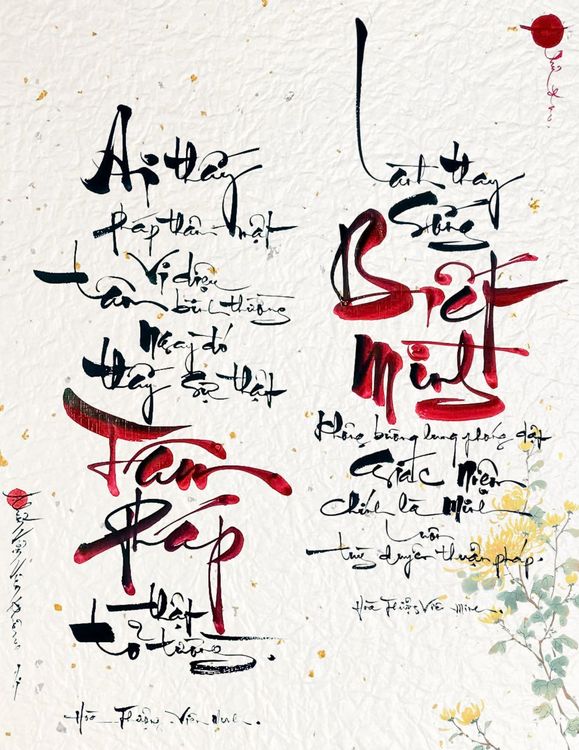 Ai thấy
pháp thâm mật
Vi diệu
tâm bình thường
Ngay đó
thấy sự thật
Tâm
Pháp
thật
tỏ tường
Hòa Thượng Viên Minh.
Lành thay
Sống
Biết
Mình
Không buông lung phóng dật
Giác Niệm
chính là Mình
luôn
tùy duyên thuận pháp.
Hòa Thượng Viên Minh.